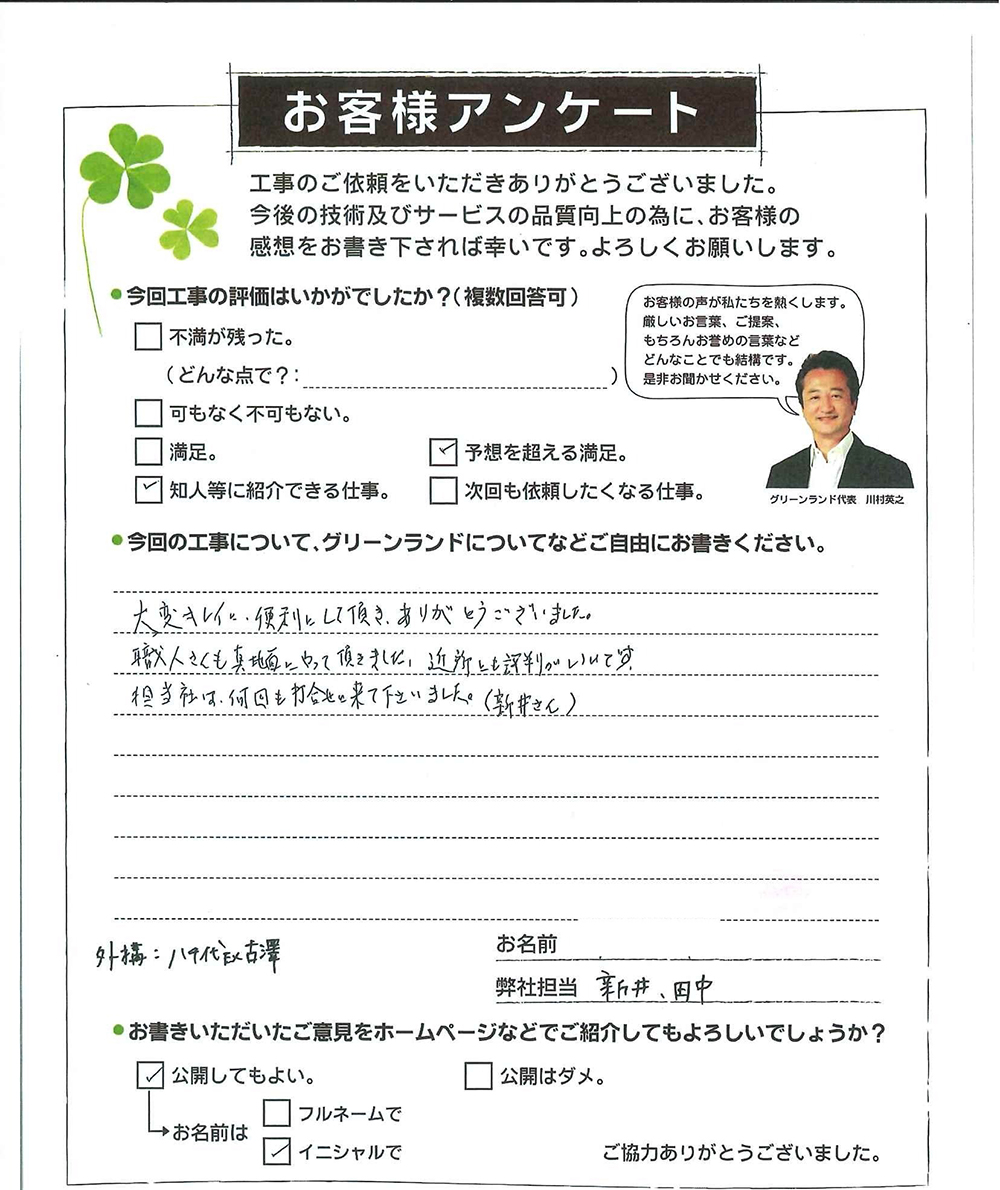 お客様アンケート
工事のご依頼をいただきありがとうございました。
今後の技術及びサービスの品質向上の為に、お客様の
感想をお書き下されば幸いです。よろしくお願いします。
●今回工事の評価はいかがでしたか?(複数回答可)
お客様の声が私たちを熱くします。
厳しいお言葉、ご提案、
もちろんお誉めの言葉など
どんなことでも結構です。
是非お聞かせください。
グリーンランド代表 川村英之
□ 不満が残った。
(どんな点で?: )
□ 可もなく不可もない。
□ 満足。 ☑ 予想を超える満足。
☑ 知人等に紹介できる仕事。 □ 次回も依頼したくなる仕事。
●今回の工事について、グリーンランドについてなどご自由にお書きください。
大変キレイに、便利にして頂き、ありがとうございました。
職人さんも真地面にやって頂きました。近所とも評判がいいです
担当社は、何回も打合せに来て下さいました。(新井さん)
お名前
外構:八千代EX古澤
弊社担当 新井、田中
●お書きいただいたご意見をホームページなどでご紹介してもよろしいでしょうか?
☑ 公開してもよい。 □ 公開はダメ。
お名前は
□ フルネームで
☑ イニシャルで
ご協力ありがとうございました。